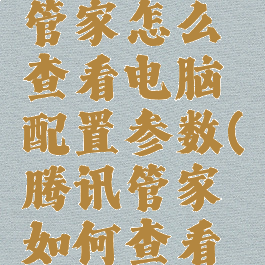 管家怎么
查看电脑
配置参数(
腾讯管家
如何查看